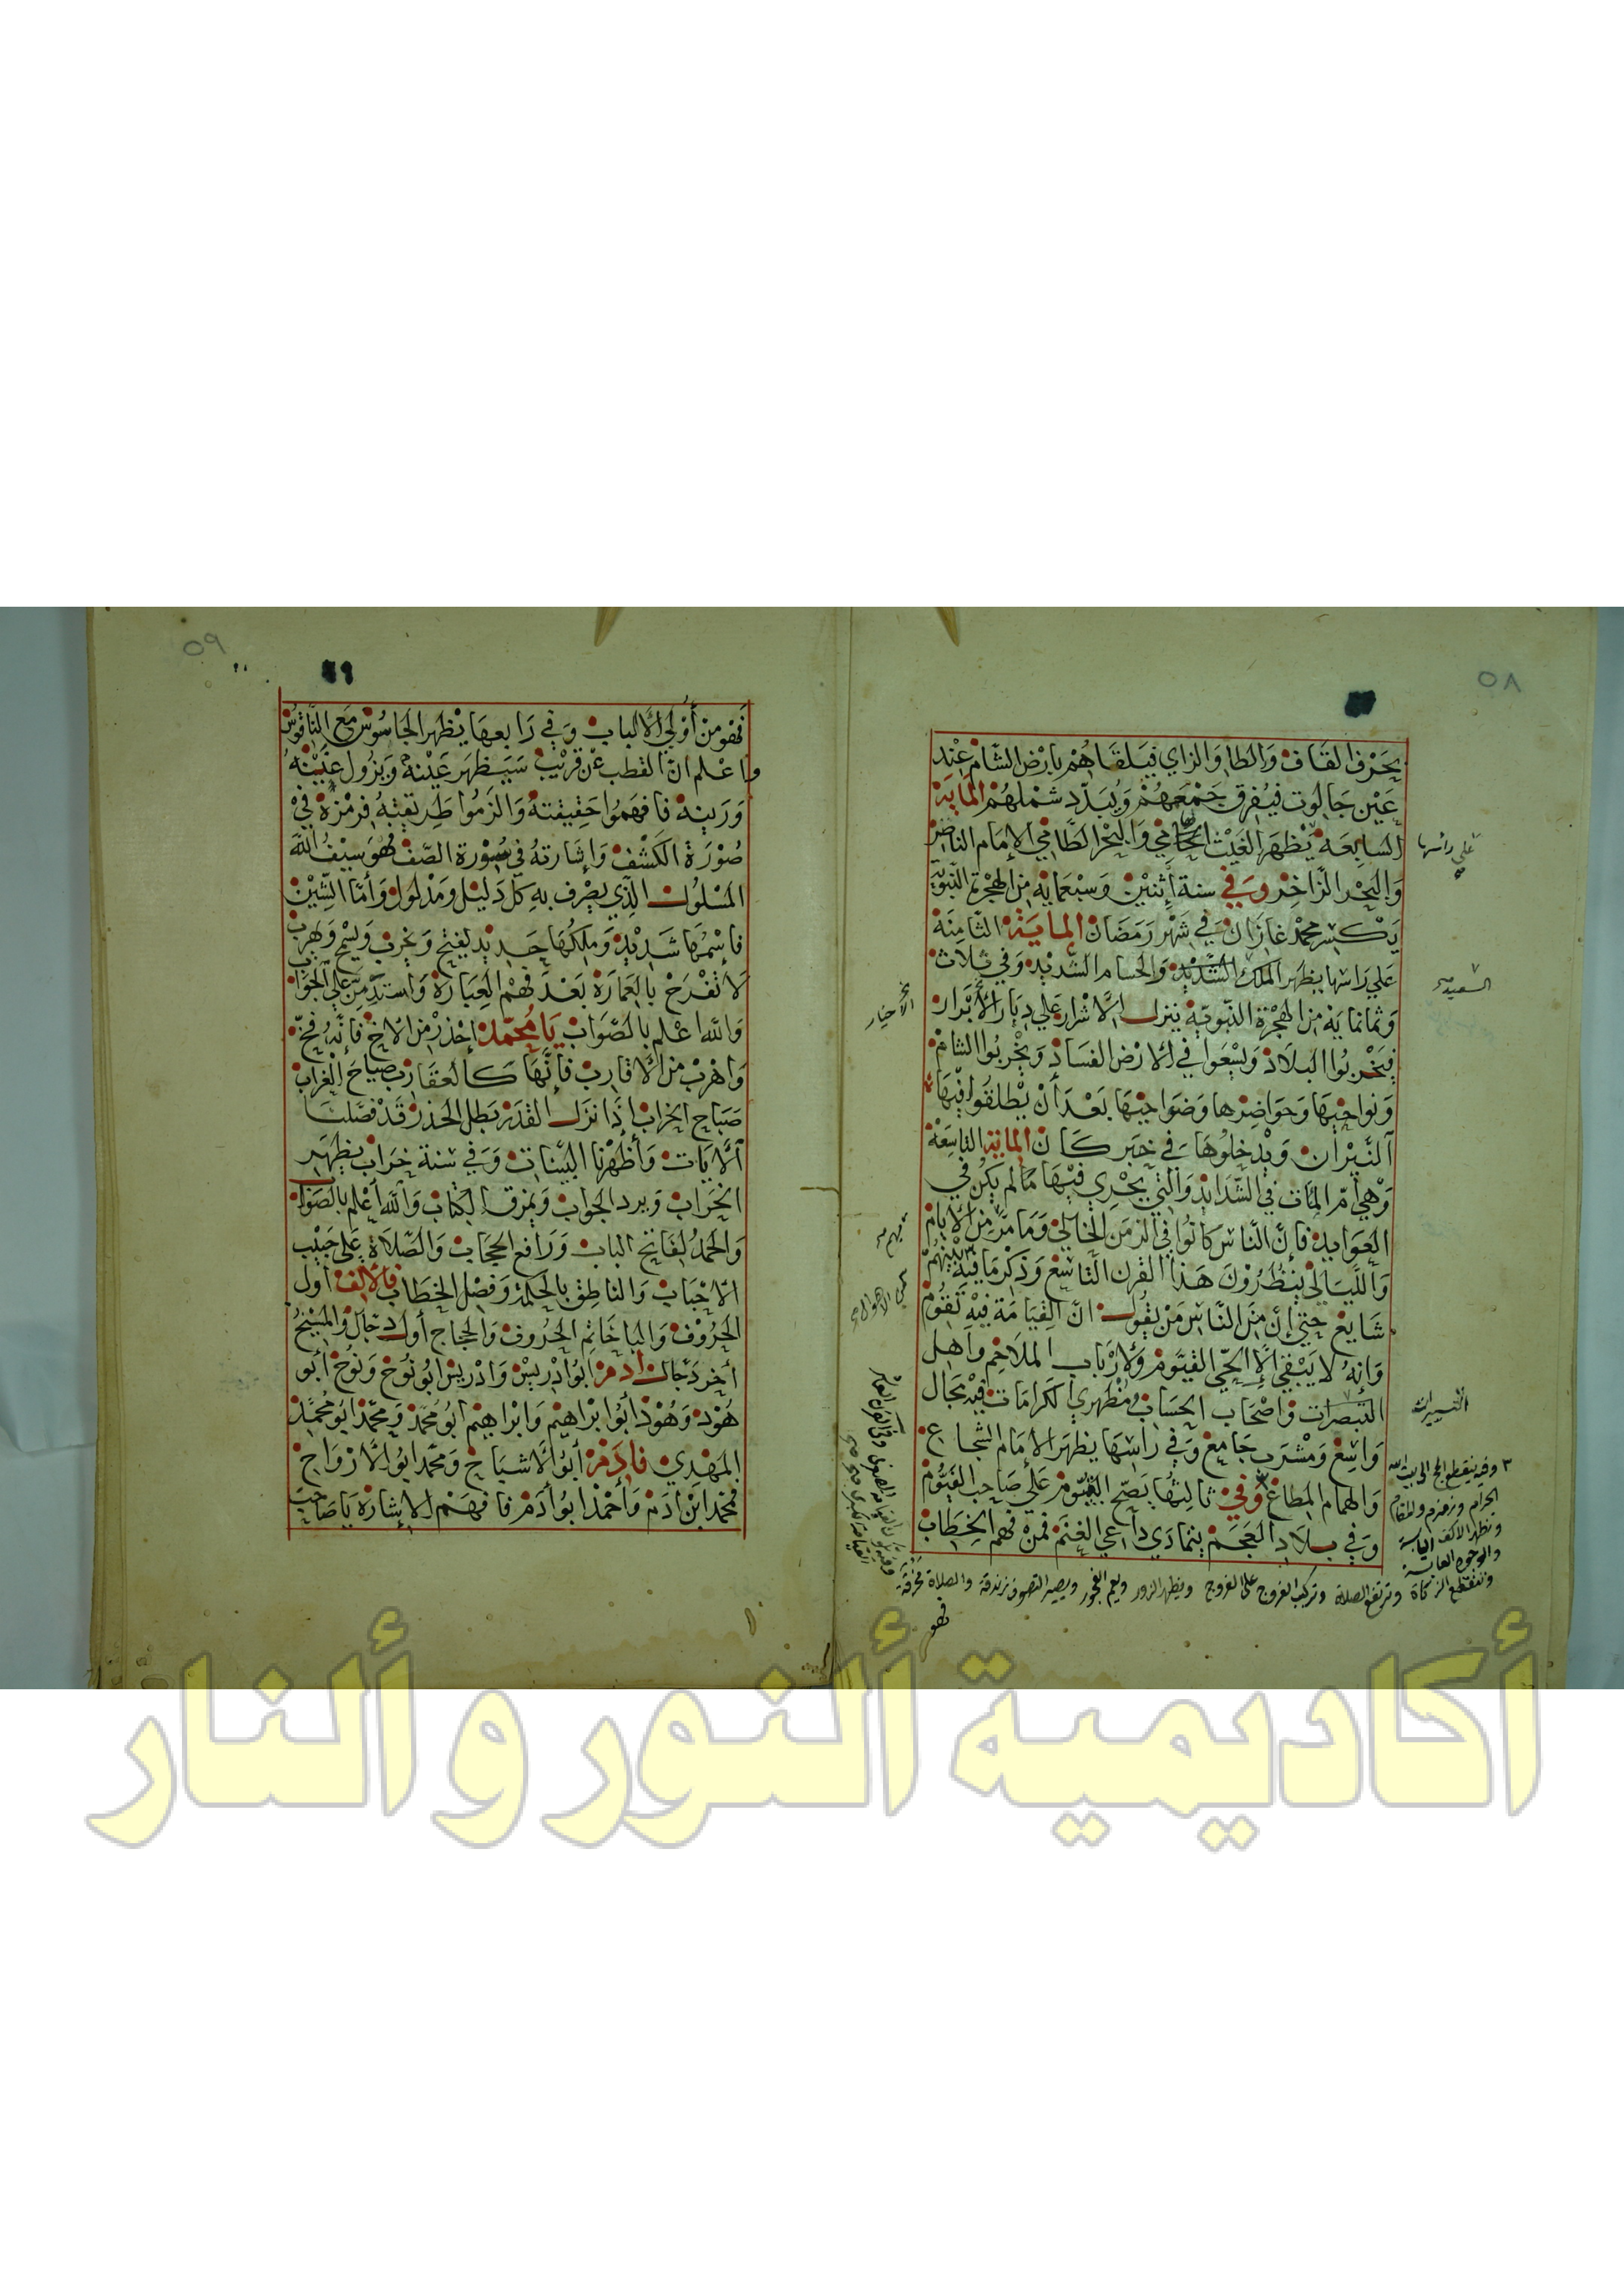 ٥٨
بحرف القاف والطا والزاي فيلقاهم بارض الشام عند
عين جالوت فيفرق جمعهم ويبدد شملهم الماية
السابعة يظهر الغيث الحامي والبحر الطامي الامام الناصر
والبحر الزاخر وفي سنة اثنين وسبعماية من الهجرة النبوية
يكسر محمد غازان في شهر رمضان الماية الثامنة
علي راسها يظهر الملك الشديد والحسام الشديد وفي ثلاث
وثمانماية من الهجرة النبوية ينزل الاشرار علي ديار الابرار
فيخربوا البلاد ويسعوا في الارض الفساد ويخربوا الشام
ونواحيها وحواضرها وضواحيها بعد أن يطلقوا فيها
النيران ويدخلوها في خبر كان الماية التاسعة
وهي أم المآت في الشدايد والتي يجري فيها ما لم يكن في
العوايد فإن الناس كانوا في الزمن الخالي وما مر من الايام
والليالي ينتظرون هذا القرن التاسع وذكر ما فيه بينهم
شايع حتي إن من الناس من يقول ان القيامة فيه تقوم
وانه لا يبقي إلا الحي القيوم ولارباب الملاحم واهل
التبصرات واصحاب الحساب ومظهري الكرامات فيه مجال
واسع ومشرب جامع وفي راسها يظهر الامام الشجاع
والهمام المطاع وفي ثالثها يصح الفيوم علي صاحب الفيوم
وفي بلاد العجم يتمادي داعي الغنم فمن فهم الخطاب
علي راسها
السعيد
الاخيار
التسييرات
وفيه ينقطع الحج الى بيت الله
الحرام وزمزم والمقام
وتظهر الاكف اليابسة
والوجوه العابسة
وتنقطع الزكاة وترتفع الصلاة وتركب الفروج على الفروج ويظهر الزور ويعم الفجور ويصير التصوف زندقة والصلاة مخرقة
فهو
٥٩
فهو من أولي الالباب وفي رابعها يظهر الجاسوس مع الناقوس
واعلم ان القطب عن قريب سيظهر عينه ويزول غينه
ورينه فافهموا حقيقته والزموا طريقته فرمزه في
صورة الكشف وإشارته في سورة الصف فهو سيف الله
المسلول الذي يصرف به كل دليل ومدلول وأما الشين
فاسمها شديد وملكها جديد يفتح ويخرب ويسم ويهرب
لا تفرح بالعمارة بعد فهم العبارة واستدمن علي الجواب
والله اعلم بالصواب يا محمد إحذر من الاخ فإنه فخ
واهرب من الاقارب فانها كالعقارب صياح الغراب
صباح الخراب إذا نزل القدر بطل الحذر قد فصلنا
الآيات وأظهرنا البينات وفي سنة خراب يظهر
الخراب ويرد الجواب ويمزق الكتاب والله أعلم بالصواب
والحمد لفاتح الباب ورافع الحجاب والصلاة على حبيب
الاحباب والناطق بالحكمة وفصل الخطاب فالالف أول
الحروف والبا خاتم الحروف والحجاج أول دجال والمسيخ
أخر دجال أدم ابوا دريس وادريس ابو نوح ونوح أبو
هود وهود أبوا براهيم وابراهيم ابو محمد ومحمد ابو محمد
المهدي فادم أبو الاشباح ومحمد ابو الارواح
محمد ابن ادم وأحمد ابو أدم فافهم الاشارة يا صاحب
أكاديمية ألنور و ألنار